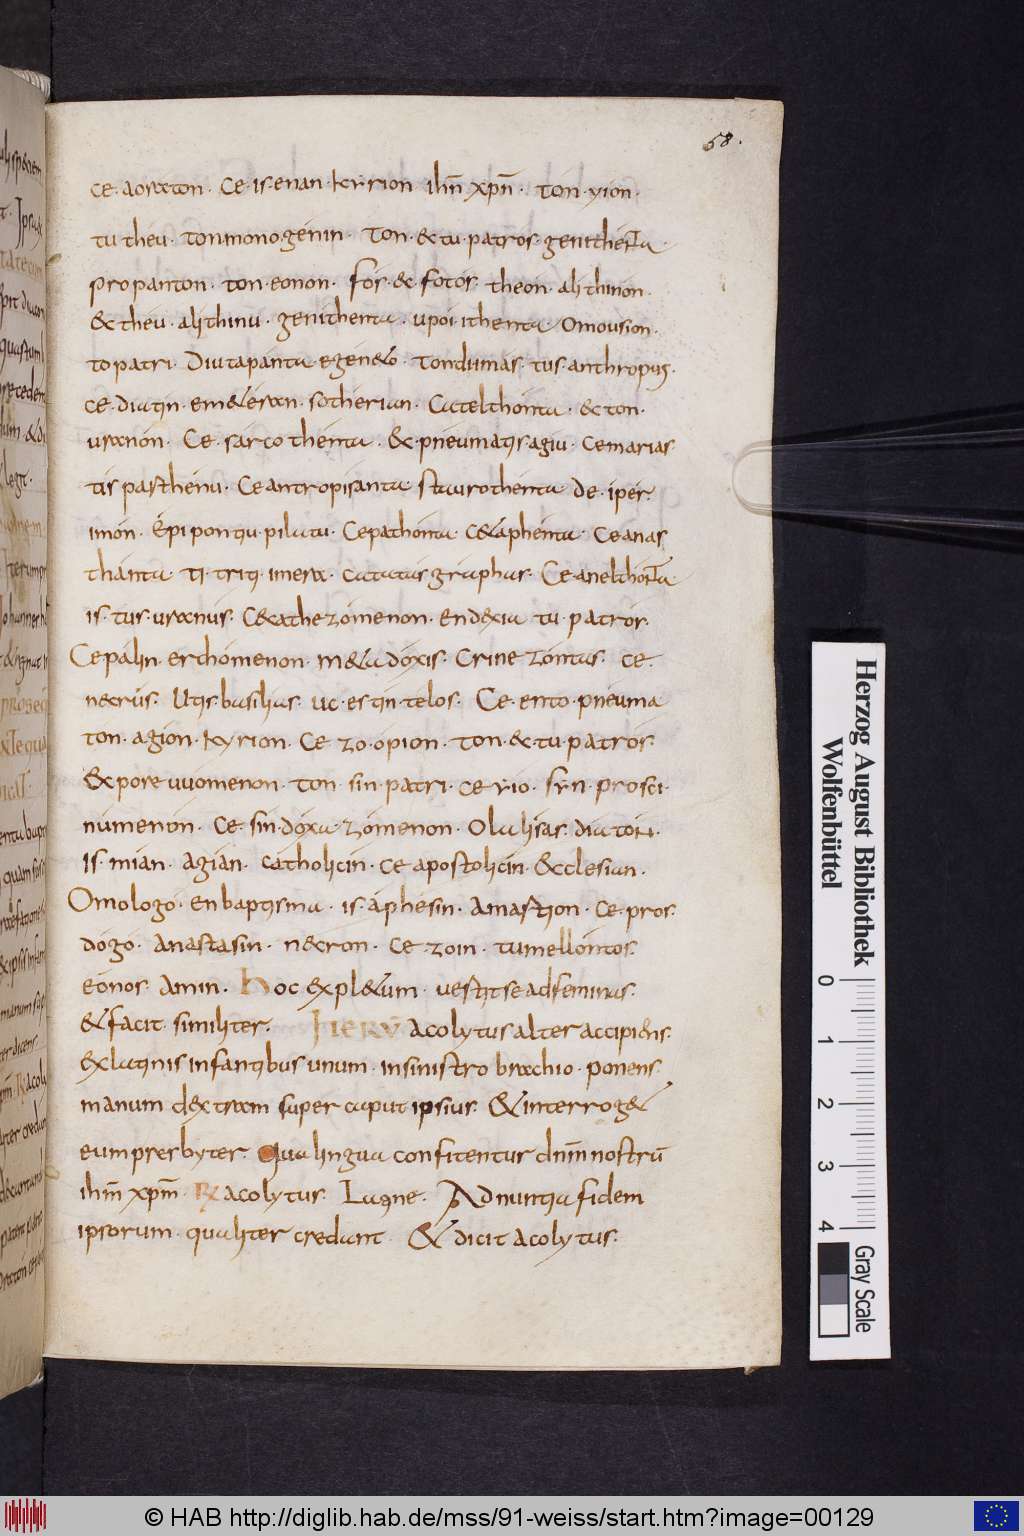 68.
ce. aoraton. Ce. is. enan. kyrion ihm̅ xpm̅. ton. yion.
tu theu. tonmono.genin. Ton. & tu. patros. genithenta.
propanton. ton. eonon. fos. &c. fotos. theon. alithinon.
& theu. alithinu. genithenta. upoi.ithenta. Omousion.
topatri. Diutapanta egen&o. tondumas. tus. anthropus.
ce. diatin. em&eran. sotherian. Catelthonta. & ton.
uranon. Ce. sarcothenta. & pneumatis agiu. Cemarias.
tis parthenu. Ceantropisanta. staurothenta de. iper.
imon. Epi pontiu. pilatu. Cepathonta. C&aphenta. Ceanas
thanta ti. triti. imera. catatas graphas. Ce. anelthonta
is. tus. uranus. C&cathezomenon. end&xia tu. patros.
Cepalin. erchomenon. m&a doxis. Crine zontas. ce.
necrus. Utis. basilias. uc. estin. telos. Ce. ento. pneuma
ton. agion. kyrion. Ce zo.opion. ton. & tu. patros.
& pore uuomenon. ton. sin. patri. ce yio. syn. prosci.
numenon. ce. sin. doxa zomenon. Olalisas. dia ton.
Is. mian. agian. catholicin. ce apostolicin. &cclesian.
Omologo. en baptisma. is. aphesin. amastion. ce. pros.
dogo. anastasin. necron. ce. zoin. tumellontos.
eonos. amin. Hoc expl&um. uestit se ad feminas.
& facit. similiter. Acolytus alter accipiens.
ex latinis infantibus unum. insinistro brachio. ponens.
manum dextram super caput ipsius. & interrog&
eum presbyter. Qua lingua confitentur dnm̅ nostrū
ihm̅ xpm̅. R acolytus. Latine. Adnuntia fidem
ipsorum. qualiter credant & dicit acolytus.
Herzog August Bibliothek
Wolfenbüttel
0 1 2 3 4
Gray Scale
© HAB http://diglib.hab.de/mss/91-weiss/start.htm?image=00129